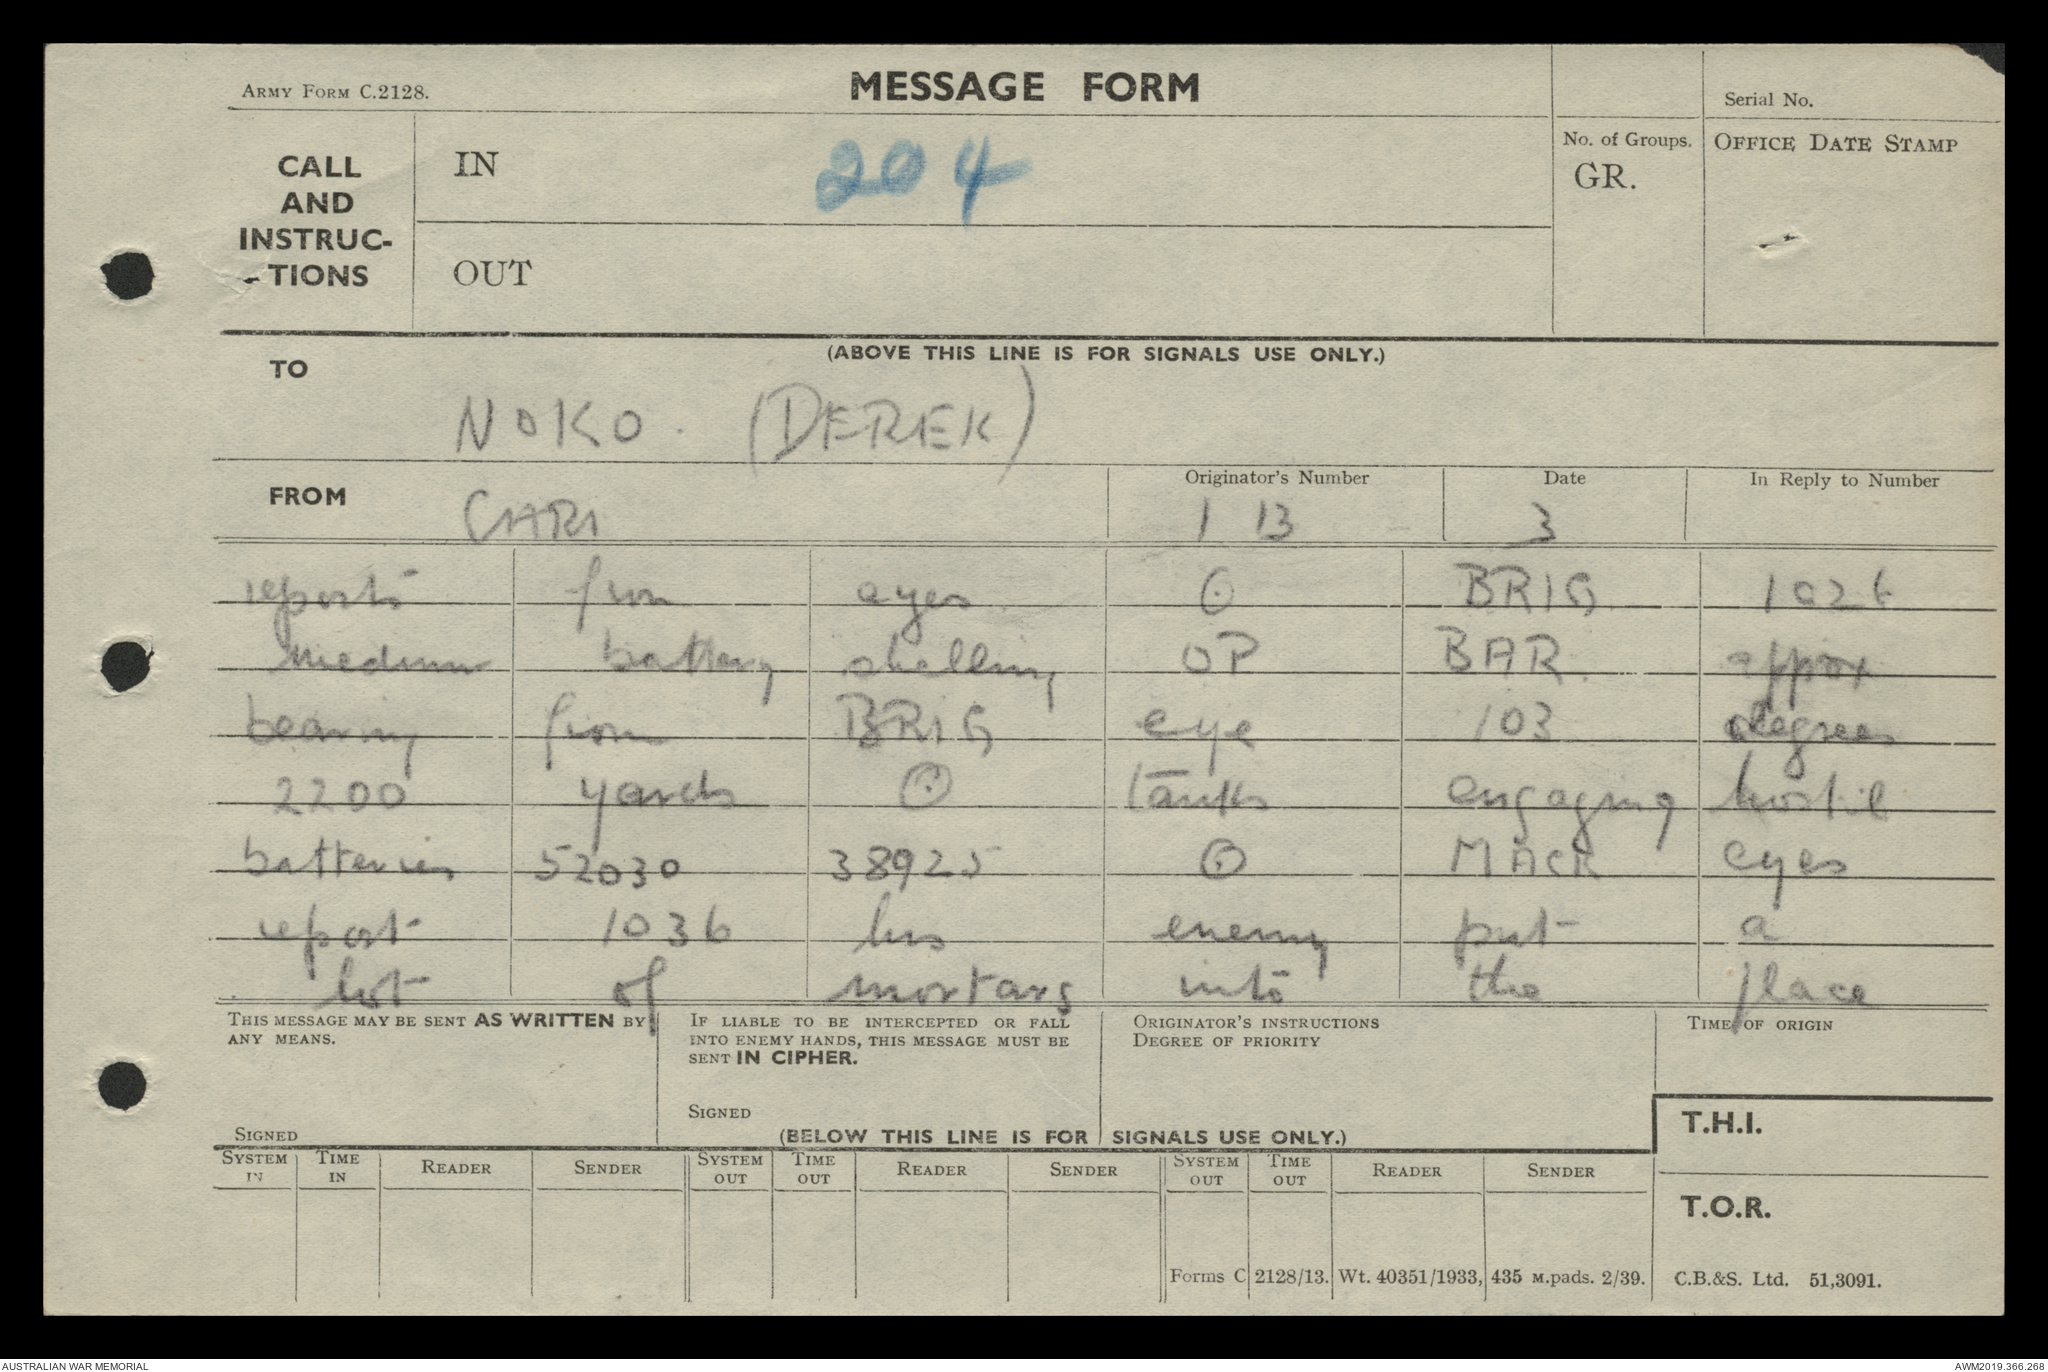 ARMY FORM C.2128.
MESSAGE FORM
Serial No.
CALL AND INSTRUC-TIONS
IN
204
No. of Groups.
GR.
OFFICE DATE STAMP
OUT
(ABOVE THIS LINE IS FOR SIGNALS USE ONLY.)
TO
NOKO. (DEREK)
FROM
CARI
Originator's Number
1 13
Date
3
In Reply to Number
reports from eyes ⊙ BRIG 1026
medium battery shelling OP BAR. approx
bearing from BRIG eye 103 degrees
2200 yards ⊙ Tanks engaging hostile
batteries 52030 38925 ⊙ MACK eyes
report 1036 hrs enemy put a
lot of mortars into the place
THIS MESSAGE MAY BE SENT AS WRITTEN BY ANY MEANS.
SIGNED
IF LIABLE TO BE INTERCEPTED OR FALL INTO ENEMY HANDS, THIS MESSAGE MUST BE SENT IN CIPHER.
SIGNED
ORIGINATOR'S INSTRUCTIONS
DEGREE OF PRIORITY
TIME OF ORIGIN
(BELOW THIS LINE IS FOR SIGNALS USE ONLY.)
T.H.I.
SYSTEM IN TIME IN READER SENDER SYSTEM OUT TIME OUT READER SENDER SYSTEM OUT TIME OUT READER SENDER
T.O.R.
Forms C 2128/13. Wt. 40351/1933, 435 M.pads. 2/39. C.B.&S. Ltd. 51,3091.
AUSTRALIAN WAR MEMORIAL
AWM2019.366.268